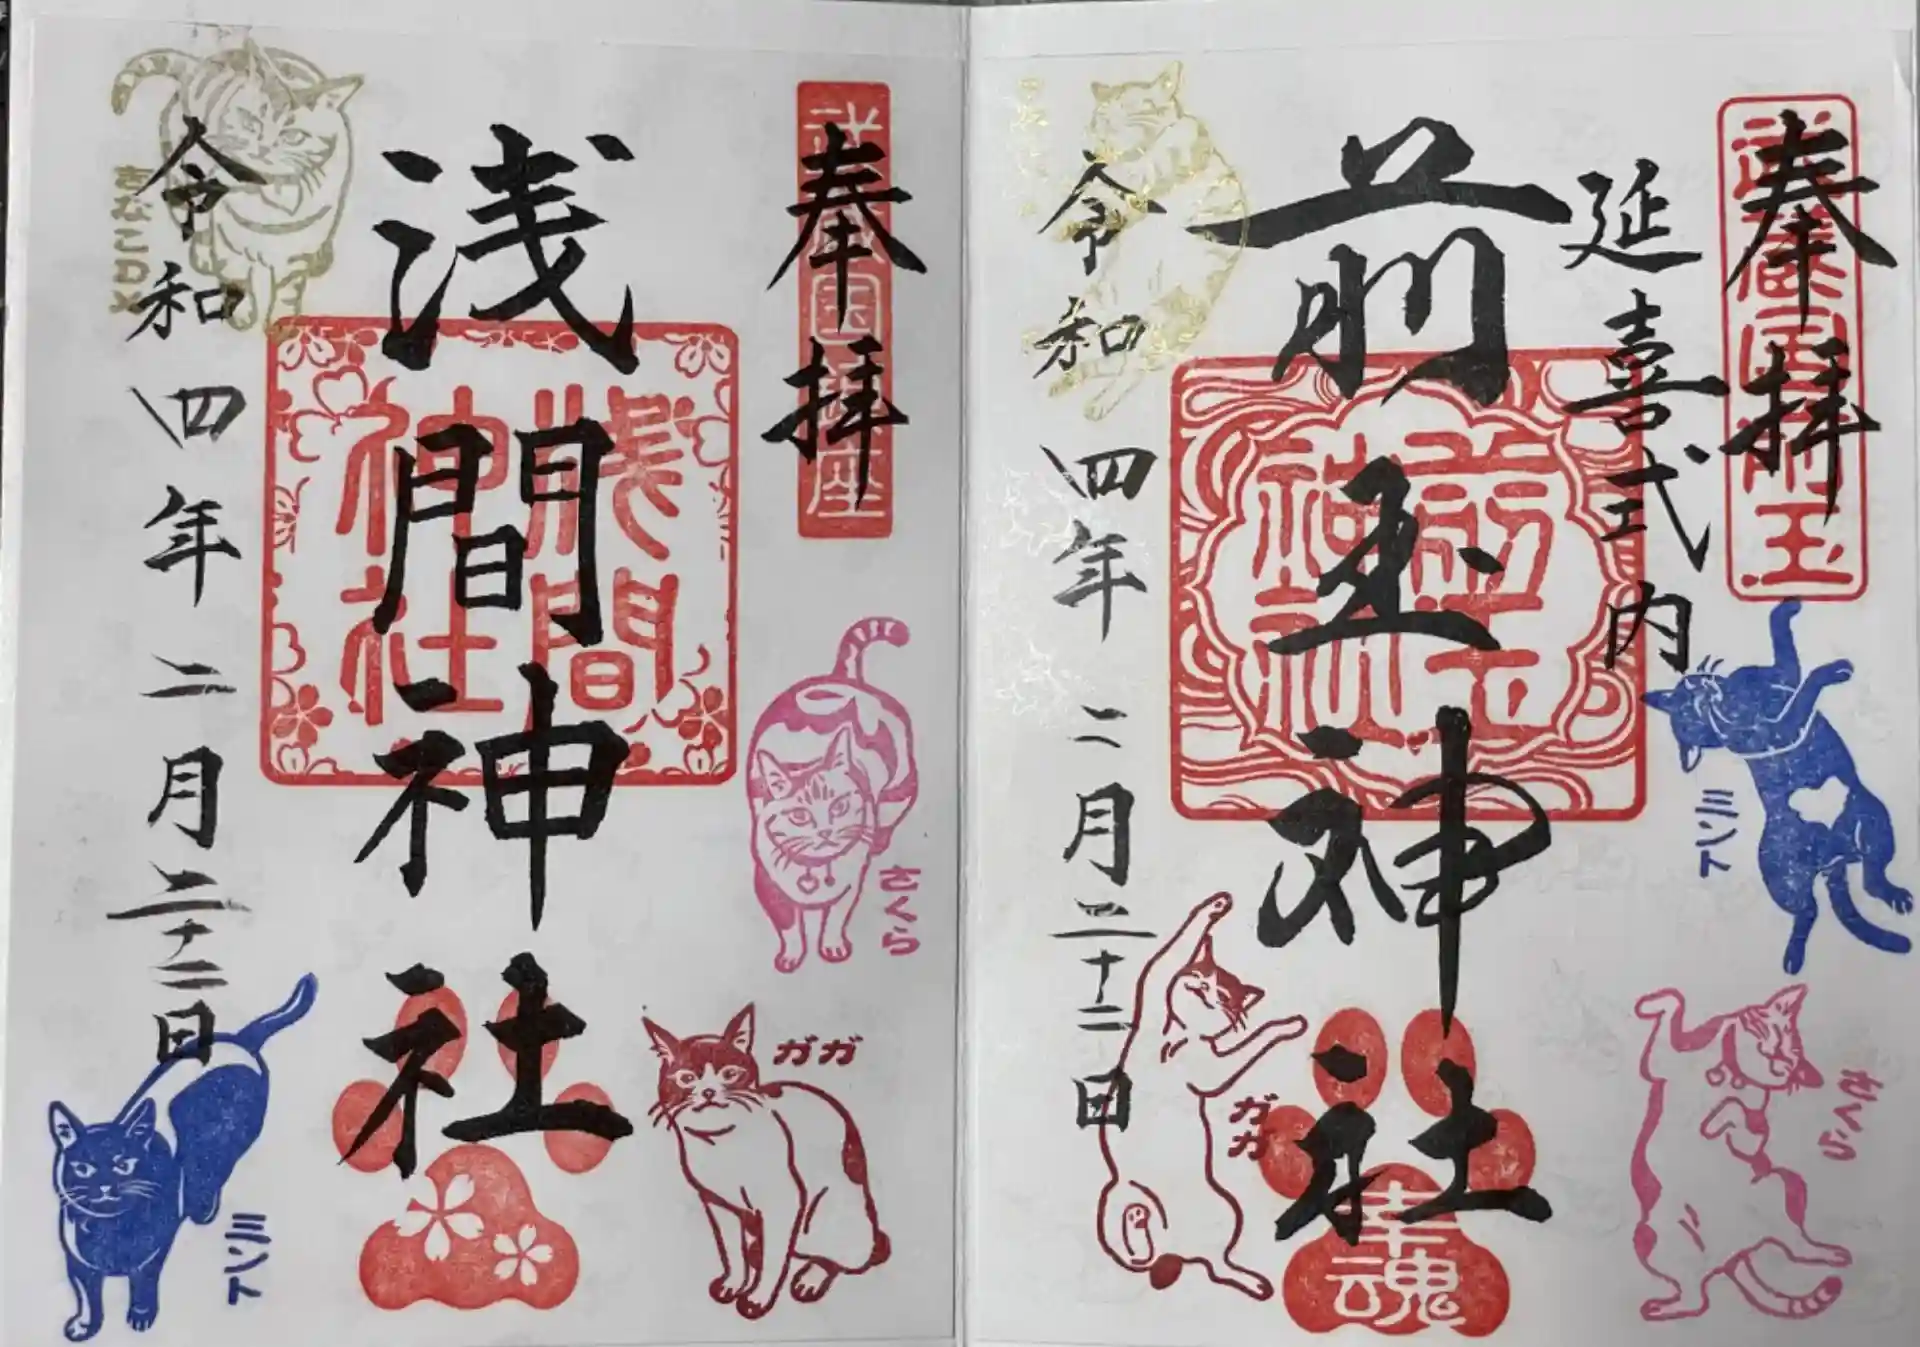 奉拝
武蔵国前玉
延喜式内
前玉神社
前玉神社
令和四年二月二十二日
ミント
さくら
ガガ
幸魂
奉拝
浅間神社
浅間神社
令和四年二月二十二日
きなこDX
さくら
ガガ
ミント